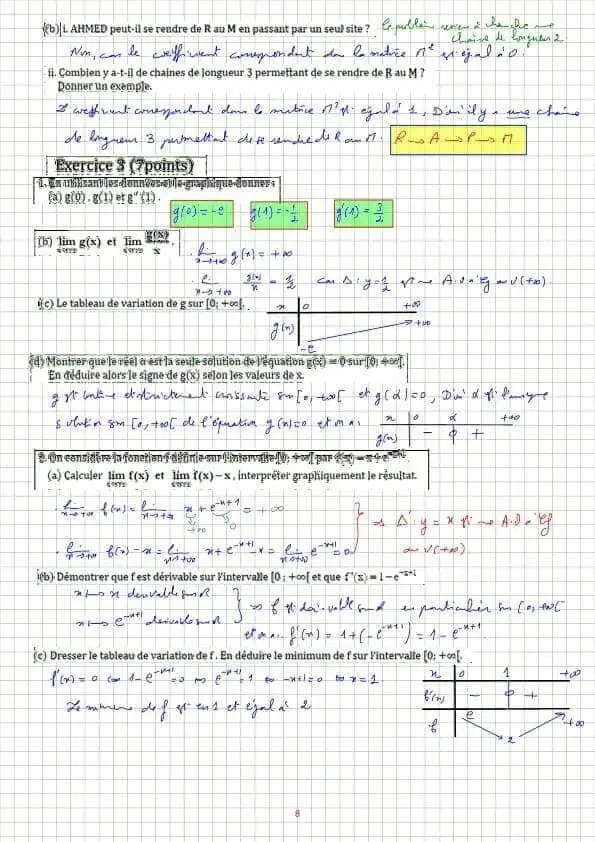 (b) i. AHMED peut-il se rendre de R au M en passant par un seul site ? le problème revient à chercher une chaîne de longueur 2
Non, car le coefficient correspondant dans la matrice M² est égal à 0.
ii. Combien y a-t-il de chaines de longueur 3 permettant de se rendre de R au M ?
Donner un exemple.
Le coefficient correspondant dans la matrice M³ est égal à 1, D'où il y a une chaîne
de longueur 3 permettant de se rendre de R au M. R → A → P → M
Exercice 3 (7points)
1. En utilisant les données et le graphique donner :
(a) g(0) , g(1) et g'(1) .
g(0) = -e g(1) = -1/2 g'(1) = 3/2
(b) lim g(x) et lim g(x)/x .
x→+∞ x→+∞
. lim x→+∞ g(x) = +∞
. lim x→+∞ g(x)/x = 1/2 car Δ: y = 1/2 est une A.O à Cg au V(+∞).
(c) Le tableau de variation de g sur [0; +∞[.
x 0 +∞
g(x) -e +∞
(d) Montrer que le réel α est la seule solution de l'équation g(x) = 0 sur [0; +∞[.
En déduire alors le signe de g(x) selon les valeurs de x.
g est continue et strictement croissante sur [0, +∞[ et g(α) = 0, D'où α est l'unique
solution sur [0, +∞[ de l'équation g(x)=0 et on a:
x 0 α +∞
g(x) - 0 +
2. On considère la fonction f définie sur l'intervalle [0; +∞[ par f(x) = x + e^{-x+1}.
(a) Calculer lim f(x) et lim f(x) - x , interpréter graphiquement le résultat.
x→+∞ x→+∞
. lim x→+∞ f(x) = lim x→+∞ x + e^{-x+1} = +∞
+∞ 0
. lim x→+∞ f(x) - x = lim x→+∞ x + e^{-x+1} - x = lim x→+∞ e^{-x+1} = 0
⇒ Δ': y = x est une A.O à Cf
au V(+∞)
(b) Démontrer que f est dérivable sur l'intervalle [0 ; +∞[ et que f'(x) = 1 - e^{-x+1}
x ↦ x dérivable sur ℝ
x ↦ e^{-x+1} dérivable sur ℝ
⇒ f est dérivable sur ℝ en particulier sur [0, +∞[
et on a: f'(x) = 1 + (-e^{-x+1}) = 1 - e^{-x+1}
(c) Dresser le tableau de variation de f . En déduire le minimum de f sur l'intervalle [0; +∞[.
f'(x) = 0 ⇔ 1 - e^{-x+1} = 0 ⇔ e^{-x+1} = 1 ⇔ -x+1 = 0 ⇔ x = 1
Le minimum de f est en 1 et égal à 2
x 0 1 +∞
f'(x) - 0 +
f e 2 +∞
8